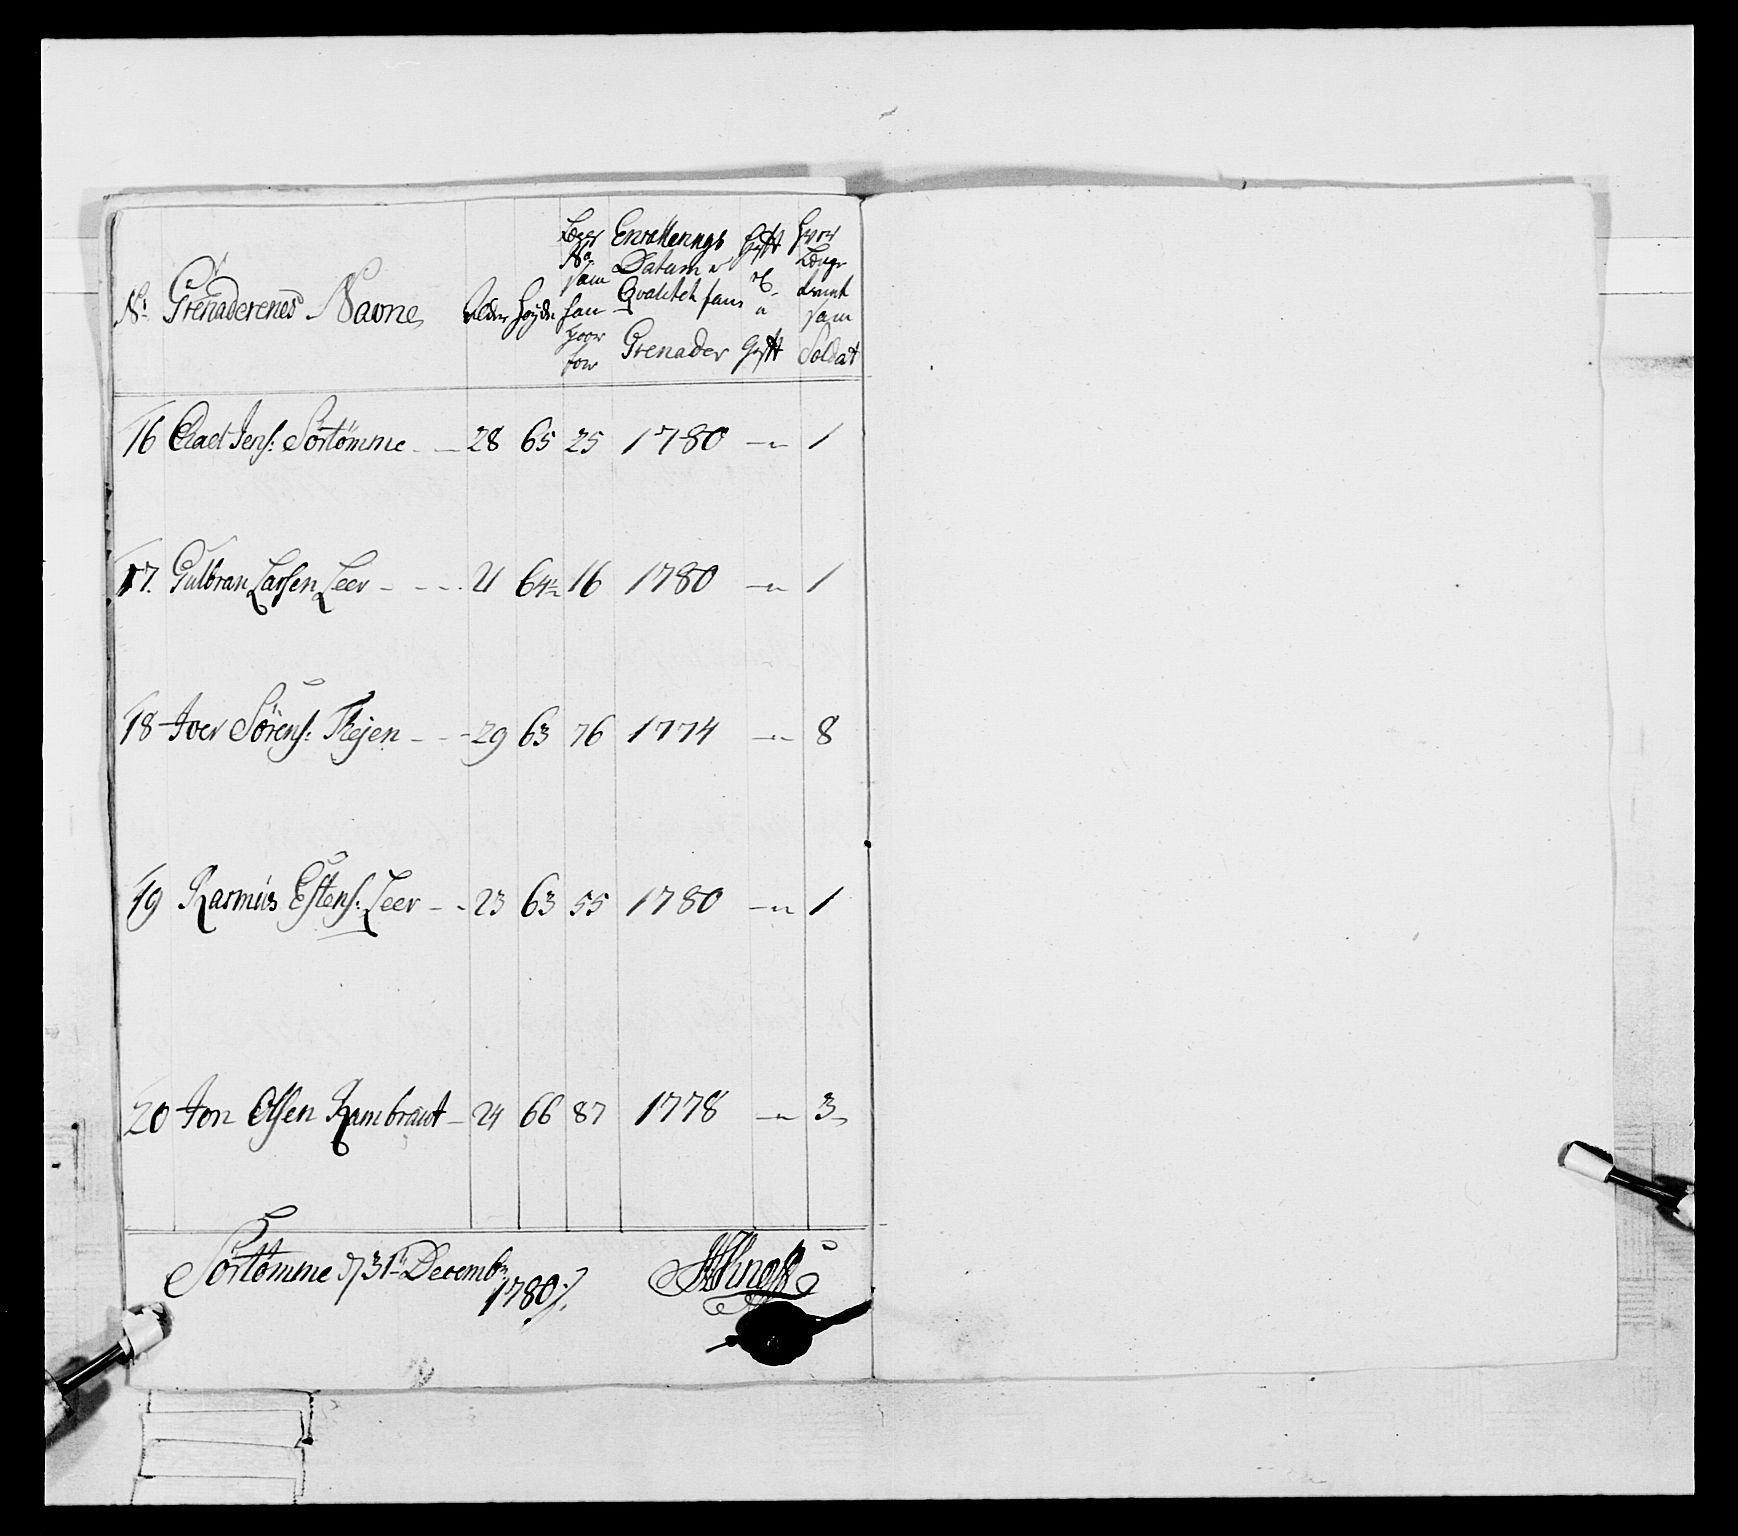 No: Grenaderenes Navne Alder Høyde Læger No som han goer for Enrollerings Datum Qvalitet som Grenader Gift og u Gift Hvor Længe tient som Soldat
16 Jens: Sørtömme 28 65 25 1780 1
17. Gulbran Larsen Leer 21 64½ 16 1780 1
18 Iver Sörens: 29 63 76 1774 8
19 Rasmus Estens: Leer 23 63 55 1780 1
20 Jon Olsen Rambraut 24 66 87 1778 3
Sortömme d 31t Decembr
1780